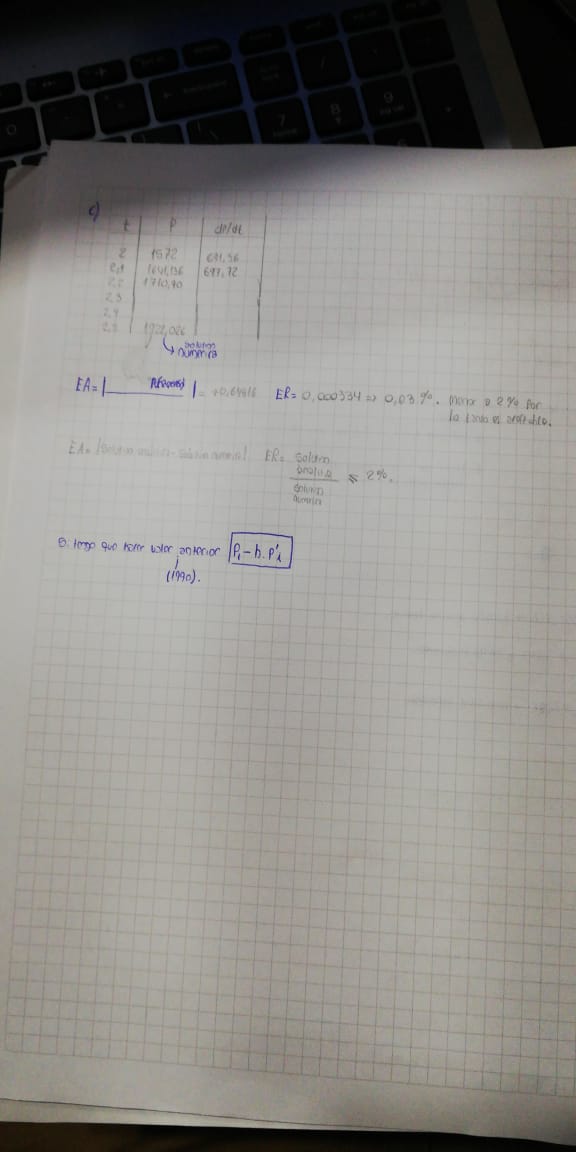 c)
t P dP/dt
2 1572 691,56
2,1 1641,156 697,72
2,2 1710,90
2,3
2,4
2,5 1922,026
solucion
numerica
EA= | | = ER= 0,000334 => 0,03 %. menor a 2% Por
lo tanto es
EA= |solucion analitica - solucion numerica| ER= solucion
analitica
≤ 2%.
solucion
numerica
Si tengo que hacer valor anterior P₁ - h. P'₁
(1990).
7
8
9